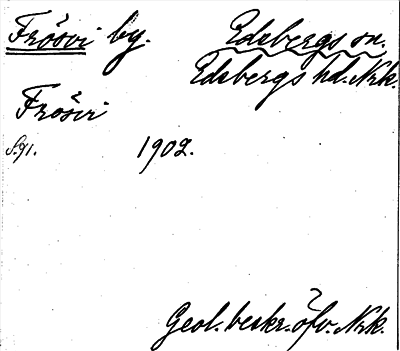 Frösvi by. Edsbergs sn.
Edsbergs hd. Nrk.
Frösvi
S. 91. 1902.
Geol. beskr. öfv. Nrk.